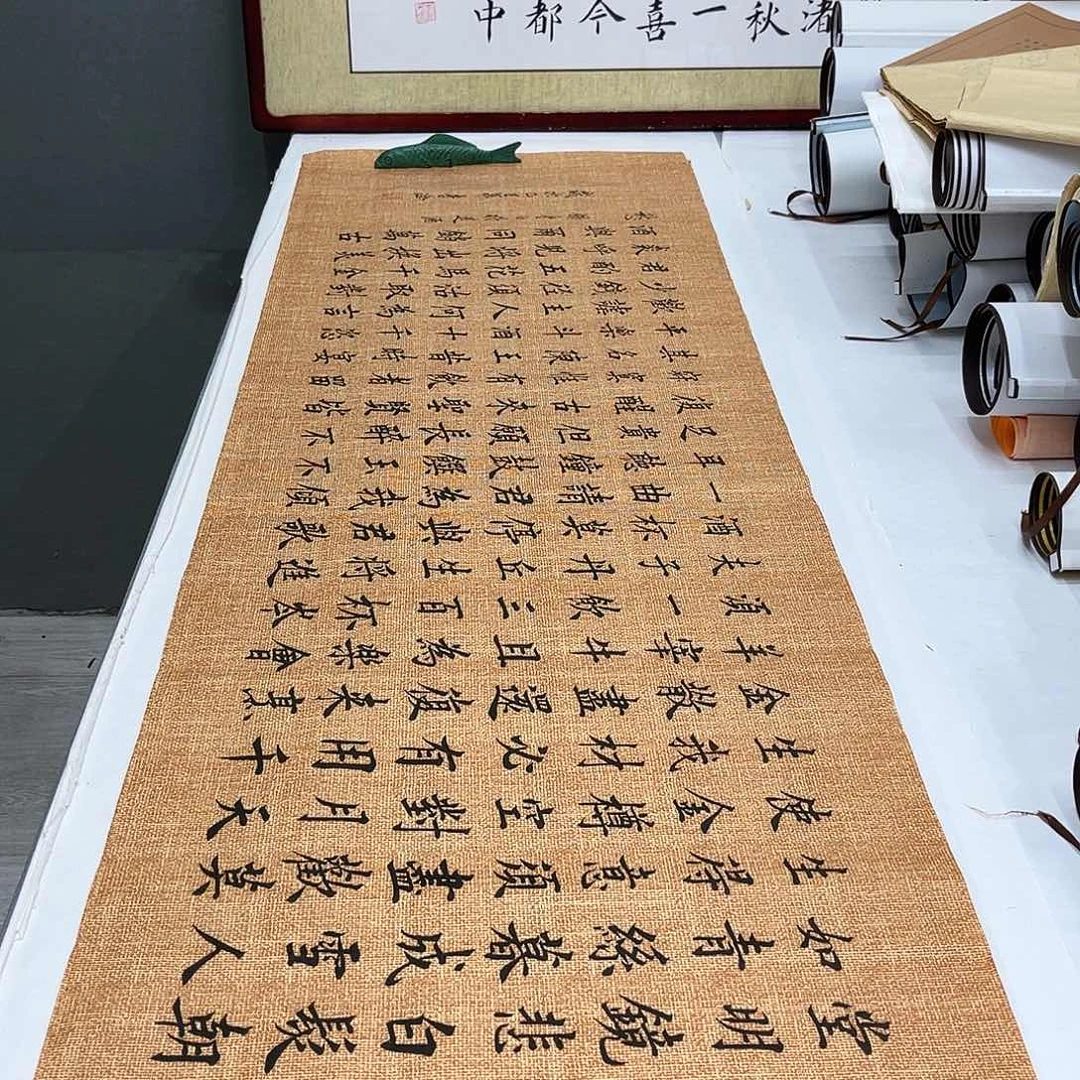 渚
秋
一
喜
今
都
中
堂明鏡悲白髮朝
如青絲暮成雪人
生得意須盡歡莫
使金樽空對月天
生我材必有用千
金散盡還復來烹
羊宰牛且為樂會
須一飲三百杯岑
夫子丹丘生將進
酒杯莫停與君歌
一曲請君為我傾
耳聽鐘鼓饌玉不
足貴但願長醉不
復醒古來聖賢皆
寂寞惟有飲者留
其名陳王昔時宴
平樂斗酒十千恣
歡謔主人何為言
少錢徑須沽取對
君酌五花馬千金
裘呼兒將出換美
酒與爾同銷萬古
愁